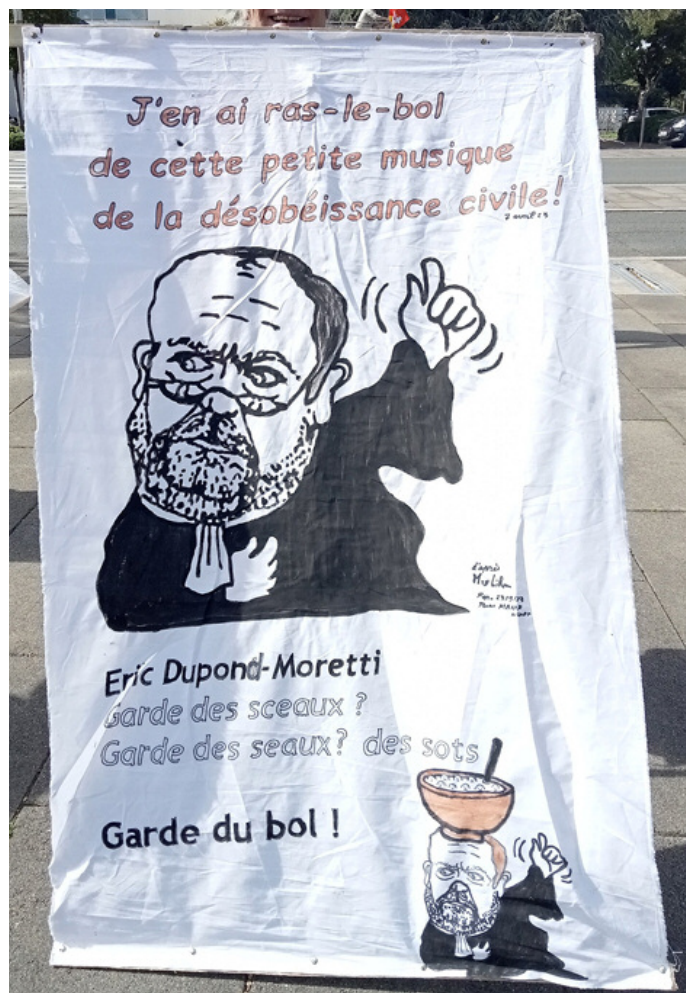 J'en ai ras-le-bol
de cette petite musique
de la désobéissance civile!
7 avril 23
d'après
Eric Dupond-Moretti
Garde des sceaux ?
Garde des seaux? des sots
Garde du bol !